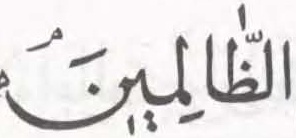 الظَّالِمِينَ